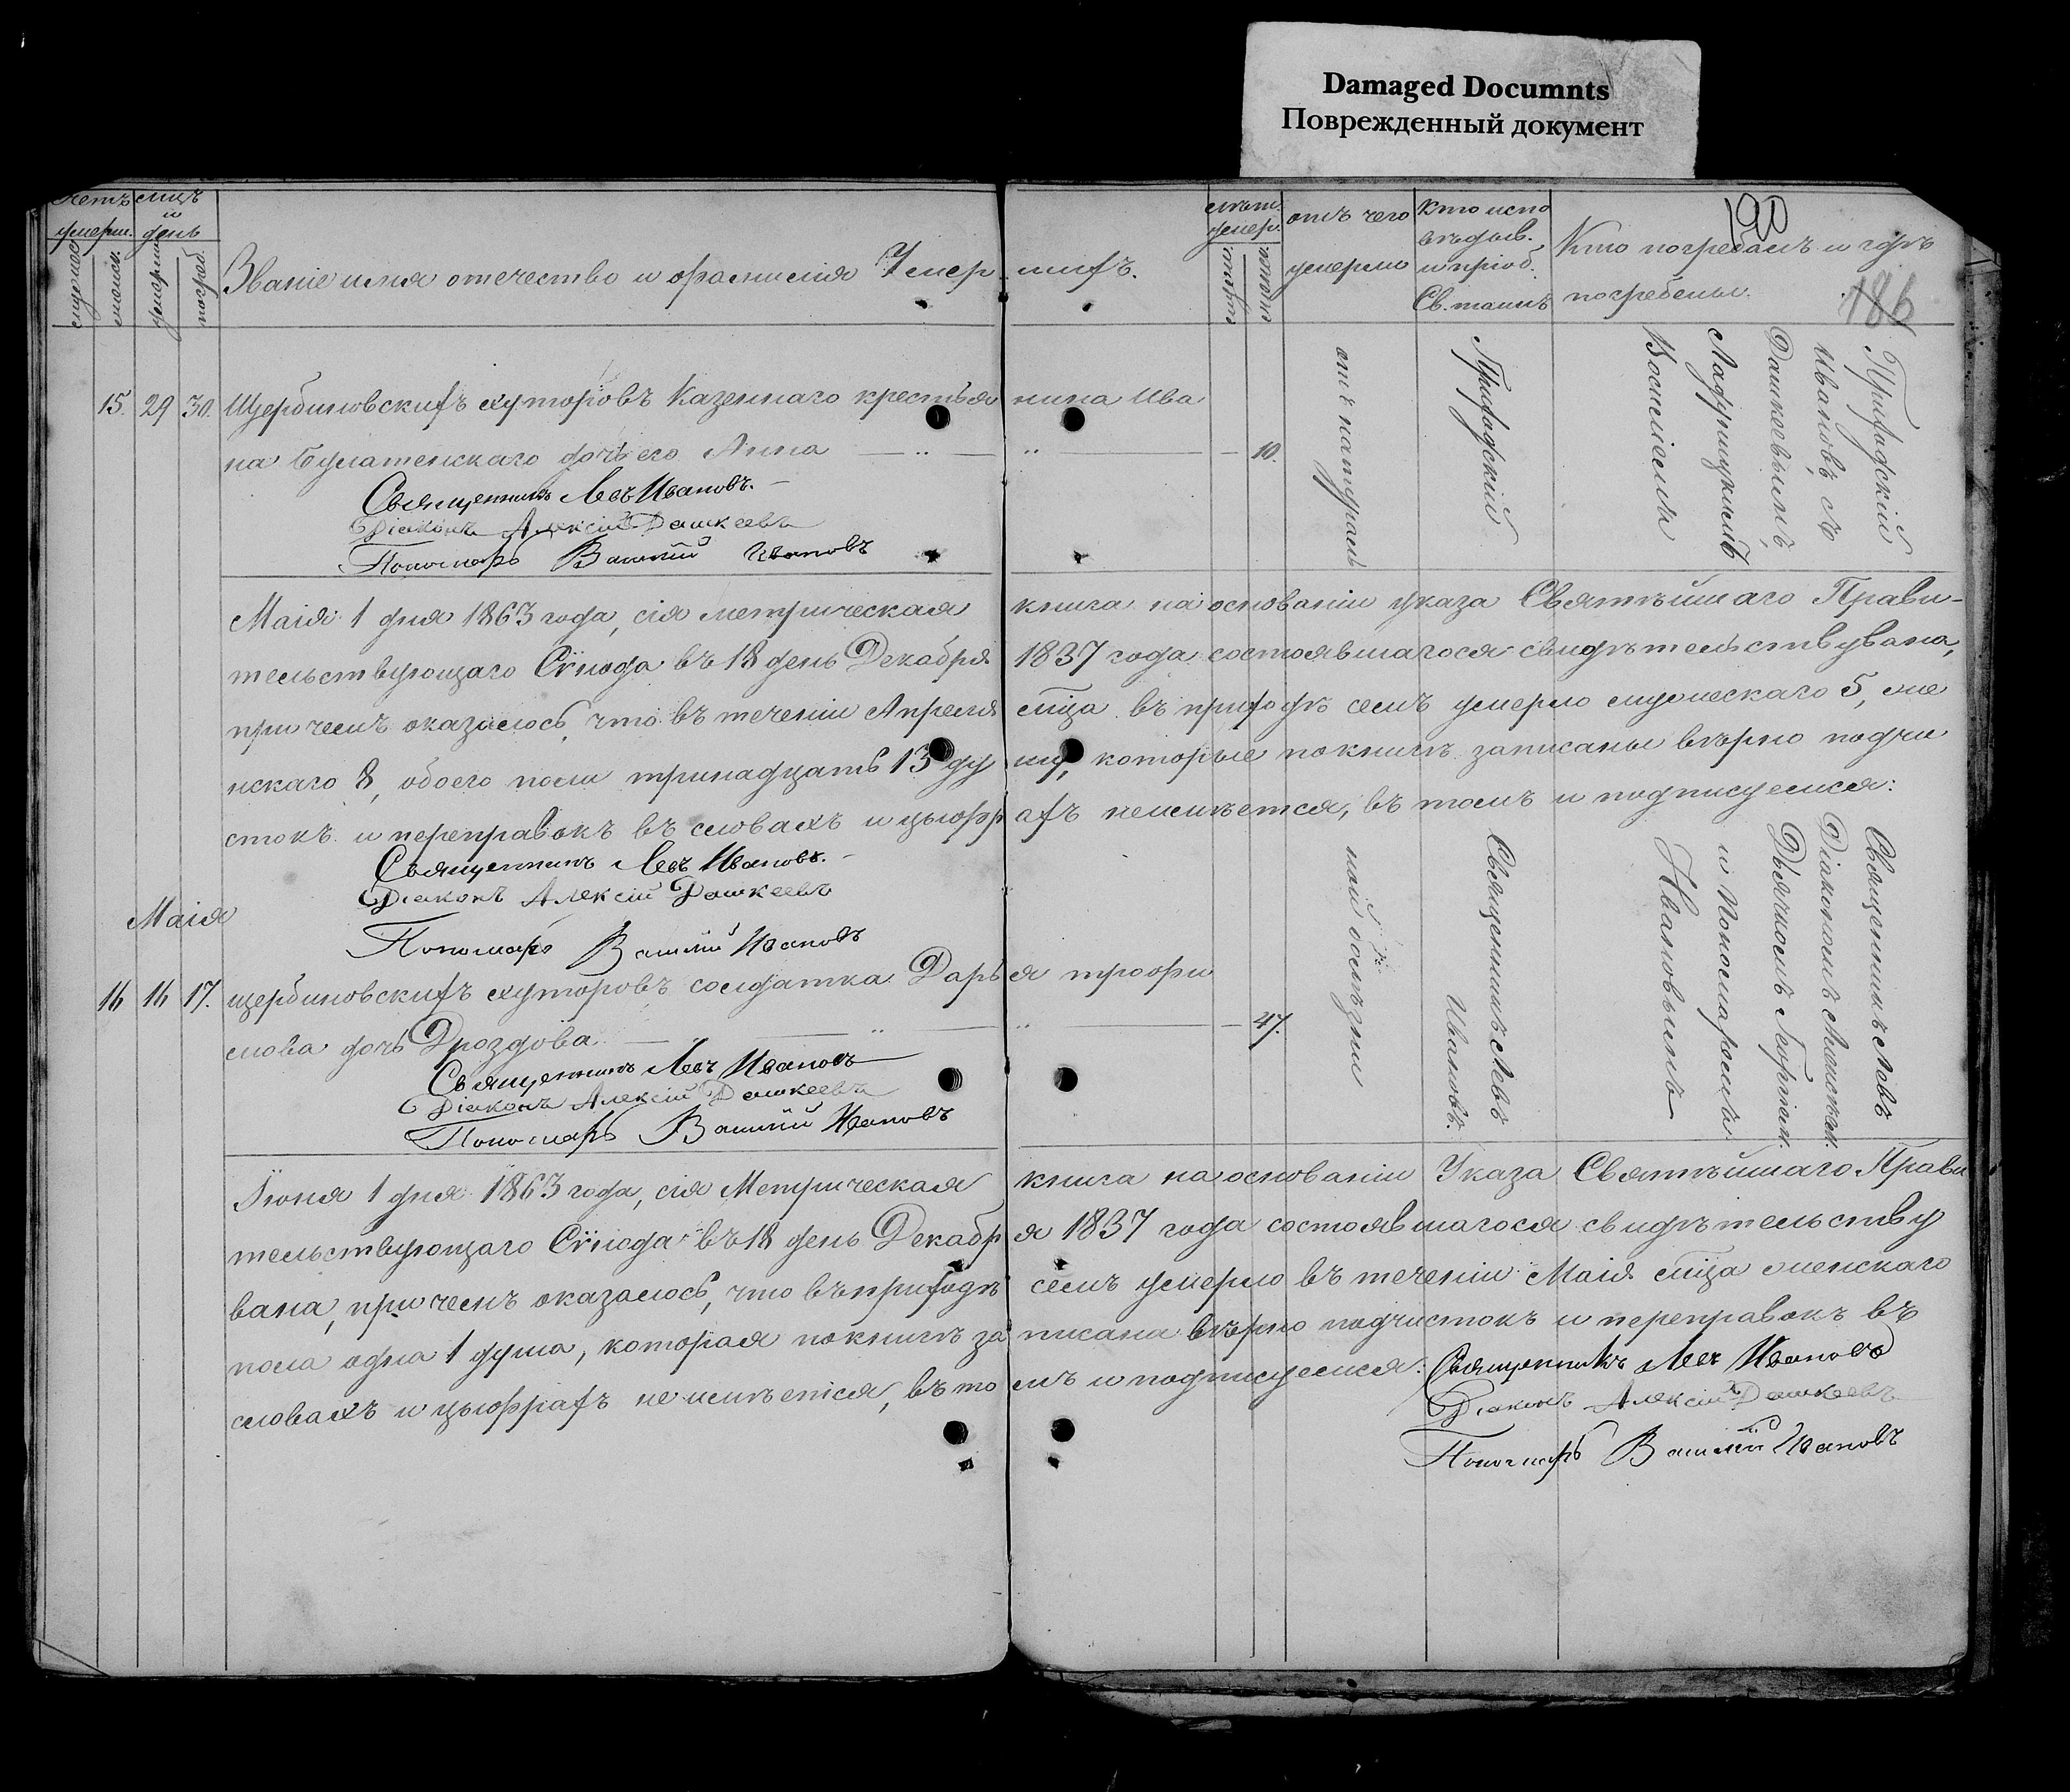 Damaged Documnts
Поврежденный документ
190
186
умерш.
мцъ
и
день
Званіе имя отечество и фамилія Умер
шихъ.
умер.
отъ чего
умерли
Кто испо
вѣдыв.
и пріоб.
Св. таинъ
Кто погребалъ и гдѣ
погребены.
15. 29 30. Щербиновскихъ хуторовъ Казеннаго крестья нина Ива
на Булатенскаго дочь его Анна — „ — „ — 10.
отъ натураль
ной болѣзни
Приходскій
Священникъ Левъ
Ивановъ.
Приходскій
Ивановъ съ
Дашкеевымъ,
Священникъ Левъ Ивановъ.
Діаконъ Алексій Дашкеевъ
Пономарь Василій Ивановъ
Маія 1 дня 1863 года, сія метрическая книга на основаніи указа Святѣйшаго Прави-
тельствующаго Сѵнода въ 18 день Декабря 1837 года состоявшагося свидѣтельствувана,
при чемъ оказалось, что въ теченіи Апреля мца въ приходѣ семъ умерло мужескаго 5, же
нскаго 8, обоего пола тринадцать 13 ду шъ, которые по книгѣ записаны вѣрно подчи
стокъ и переправокъ въ словахъ и цыфр ахъ неимѣется, въ томъ и подписуемся:
Священникъ Левъ Ивановъ.
Діаконъ Алексій Дашкеевъ
Пономарь Василій Ивановъ
Маія
16 16 17. щербиновскихъ хуторовъ солдатка Дарь я трофи
мова дочь Дроздова — „ — „ — 47.
Священникъ Левъ
Діакономъ
Дьячкомъ Георгіем.
и Пономаремъ
Ивановымъ
Священникъ Левъ Ивановъ
Діаконъ Алексій Дашкеевъ
Пономарь Василій Ивановъ
Іюня 1 дня 1863 года, сія Метрическая книга на основаніи Указа Святѣйшаго Прави
тельствующаго Сѵнода въ 18 день Декабр я 1837 года состоявшагося свидѣтельству
вана, при чемъ оказалось, что въ приходѣ семъ умерло въ теченіи Маія мца женскаго
пола одна 1 душа, которая по книгѣ за писана вѣрно подчистокъ и переправокъ въ
словахъ и цыфрахъ не имѣется, въ то мъ и подписуемся: Священникъ Левъ Ивановъ
Діаконъ Алексій Дашкеевъ
Пономарь Василій Ивановъ